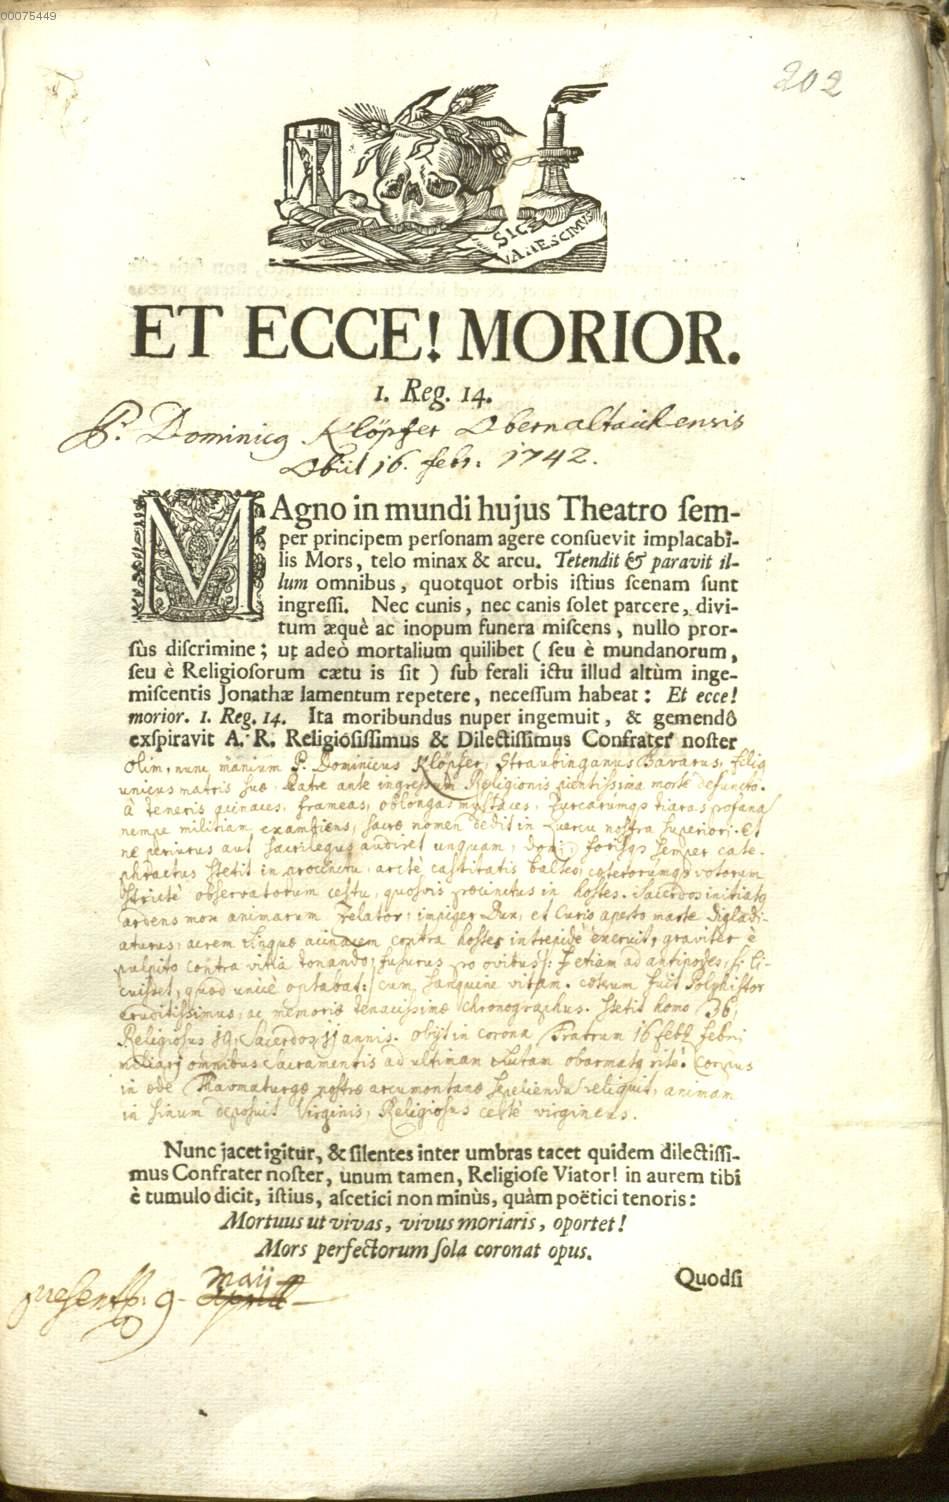 00075449
202
SIC
VANESCIMUS
ET ECCE! MORIOR.
1. Reg. 14.
P. Dominicq Klöpfer Oberaltaichensis
Obiit 16. febr: 1742.
MAgno in mundi hujus Theatro ſem-
per principem perſonam agere conſuevit implacabi-
lis Mors, telo minax & arcu. Tetendit & paravit il-
lum omnibus, quotquot orbis iſtius ſcenam ſunt
ingreſſi. Nec cunis, nec canis ſolet parcere, divi-
tum æquè ac inopum funera miſcens, nullo pror-
ſùs diſcrimine; ut adeò mortalium quilibet (ſeu è mundanorum,
ſeu è Religioſorum cætu is ſit) ſub ferali ictu illud altùm inge-
miſcentis Jonathæ lamentum repetere, neceſſum habeat: Et ecce!
morior. 1. Reg. 14. Ita moribundus nuper ingemuit, & gemendô
exſpiravit A. R. Religioſiſſimus & Dilectiſſimus Confrater noſter
olim, nunc manium P. Dominicus Klöpfer, Straubinganus Bavarus, filiq
unicus matris suæ, Patre ante ingressum Religionis pientissima morte defuncto.
à teneris acinaces, frameas, oblongas mystaces, Turcarumq tiaras profana
nempe militiam exambiens, sacræ nomen dedit in Quercu nostra superiori. Et
ne periurus aut sacrilegus audiret unquam, domi, forisq semper cata-
phractus stetit in procinctu, arctè castitatis balteo, cæterorumq votorum
strictè observatorum cestu, quosvis procinctus in hostes. Sacerdos initiatq
ardens mox animarum Zelator, impiger Dux, et Curio aperto marte digladi-
aturus, acrem linguæ acinacem contra hostes intrepidè exeruit, graviter è
pulpito contra vitia tonando, fusurus pro ovibus /: et etiam ad antipodes, si li-
cuisset, quod unicè optabat :/ cum sanguine vitam. cæterum fuit Polyhistor
eruditissimus, ac memoriæ tenacissimæ Chronographus. Stetit homo 36,
Religiosus 19, Sacerdos 11 annis. obijt in corona Fratrum 16
omnibus Sacramentis ad ultimam luctam obarmatq ritè. Corpus
in æde Thavmaturgæ nostræ arcumontanæ sepeliendu reliquit, animam
in sinum deposuit Virginis, Religiosus certè virgineus.
Nunc jacet igitur, & ſilentes inter umbras tacet quidem dilectiſſi-
mus Confrater noſter, unum tamen, Religioſe Viator! in aurem tibi
è tumulo dicit, iſtius, aſcetici non minùs, quàm poëtici tenoris:
Mortuus ut vivas, vivus moriaris, oportet!
Mors perfectorum ſola coronat opus.
Quodſi
maij
9